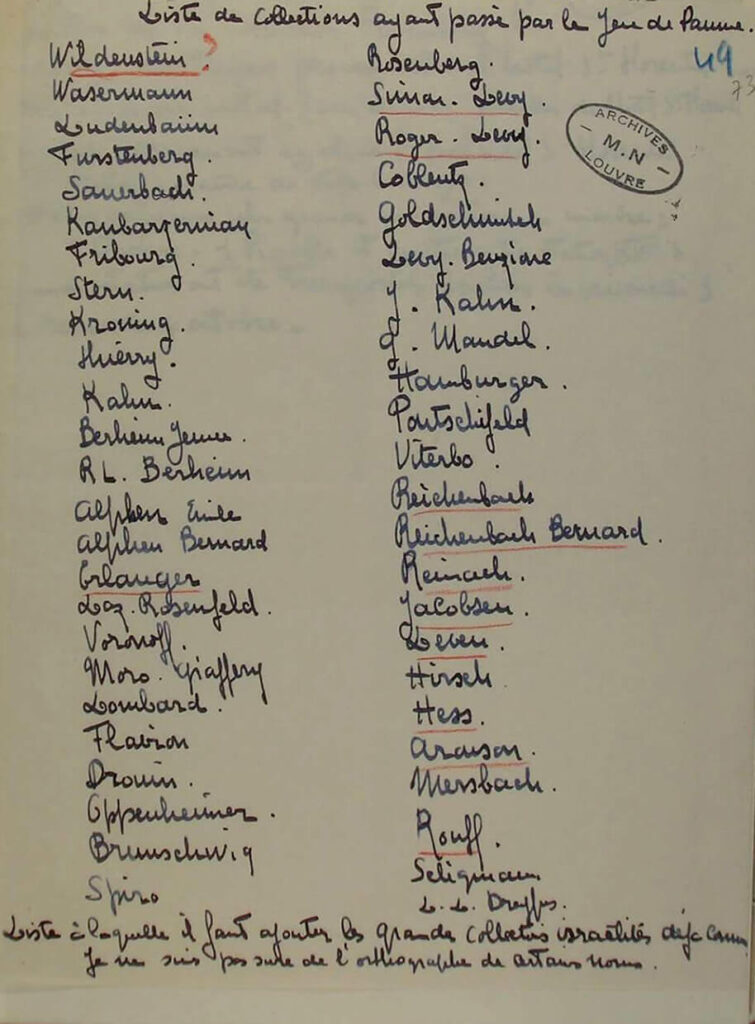 Liste de Collections ayant passé par le Jeu de Paume.
49
73
ARCHIVES
M.N
LOUVRE
Wildenstein ?
Wasermann
Lindenbaum
Furstenberg.
Sauerbach.
Kanbargerniay
Fribourg.
Stern.
Kroning.
Thierry.
Kahn.
Berheim Jeune.
RL. Berheim
Alphen Emile
Alphen Bernard
Erlanger
Laz. Rosenfeld.
Voronoff.
Moro. Giaffery
Lombard.
Flavion
Drouin.
Oppenheimer.
Brunschwig
Spiro
Rosenberg.
Simon. Levy.
Roger. Levy.
Coblentz.
Goldschmidt
Levy. Benzione
J. Kahn.
G. Mandel.
Hamburger.
Portschifeld
Viterbo.
Reichenbach
Reichenbach Bernard.
Reinach.
Jacobsen.
Leven.
Hirsch
Hess.
Aronson.
Mersbach.
Rouff.
Seligmann
L. L. Dreyfus.
Liste à laquelle il faut ajouter les grandes Collections israëlites déjà
Je ne suis pas sure de l'orthographe de certains noms.